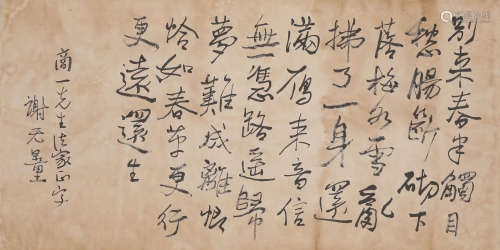 別来春半觸目
愁腸斷砌下
落梅如雪亂
拂了一身還
滿雁来音信
無憑路遥歸
夢難成離恨
恰如春草更行
更遠還生
商一先生法家正字
謝无量